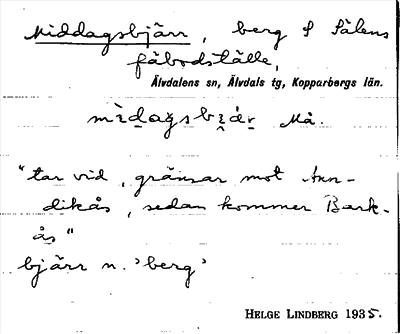 Middagsbjärr, berg S Sälens
fäbodställe,
Älvdalens sn, Älvdals tg, Kopparbergs län.
mìdag̀sbi̯ár̠ Må.
"tar vid, gränsar mot Ann-
dikås, sedan kommer Bark-
ås"
bjärr n. 'berg'
HELGE LINDBERG 1935.